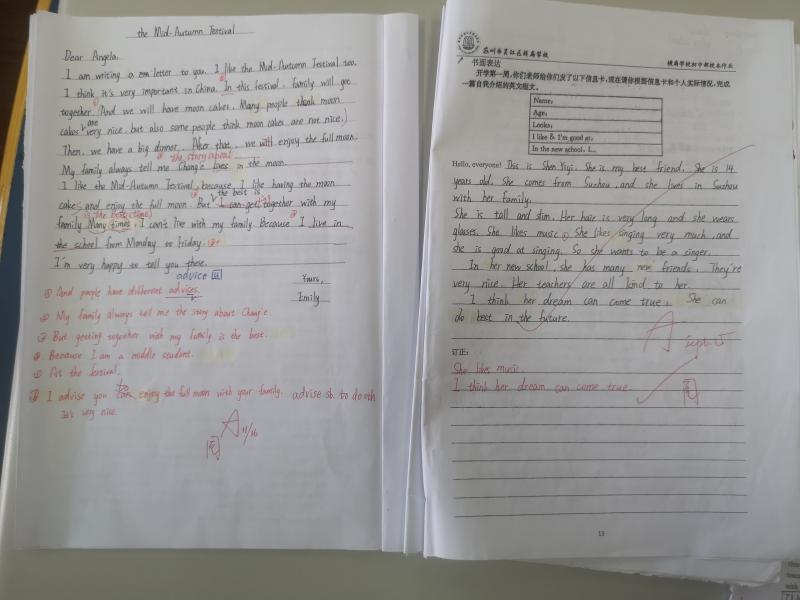 the Mid-Autumn Festival
Dear Angela,
I am writing a letter to you. I like the Mid-Autumn Festival too.
I think it's very important in China. In this festival, family will get
together. And we will have moon cakes. Many people think moon
cakes are very nice, but also some people think moon cakes are not nice.
Then, we have a big dinner. After that, we will enjoy the full moon.
the story about
My family always tell me Chang'e lives in the moon.
I like the Mid-Autumn Festival, because I like having the moon
the best is
cakes and enjoy the full moon. But I can get together with my
is the best time
family Many times. I can't live with my family. Because I live in
the school from Monday to Friday.
I'm very happy to tell you these.
advice
Yours,
Emily
① And people have different advices.
② My family always tell me the story about Chang'e.
③ But getting together with my family is the best.
④ Because I am a middle student.
⑤ At the festival.
to
I advise you can enjoy the full moon with your family. advise sb. to do sth
It's very nice.
A 11/16
阅
苏州市吴江区横扇学校
横扇学校初中部校本作业
书面表达
开学第一周,你们老师给你们发了以下信息卡,现在请你根据信息卡和个人实际情况,完成
一篇自我介绍的英文短文。
Name:
Age:
Looks:
I like & I'm good at:
In the new school, I...
Hello, everyone! This is Shen Yuqi. She is my best friend. She is 14
years old. She comes from Suzhou, and she lives in Suzhou
with her family.
She is tall and slim. Her hair is very long and she wears
glasses. She likes music. She likes singing very much, and
she is good at singing. So she wants to be a singer.
In her new school, she has many new friends. They're
very nice. Her teachers are all kind to her.
I think her dream can come true. She can
do best in the future.
A
Sept. 15
订正:
She likes music.
I think her dream can come true.
阅
13